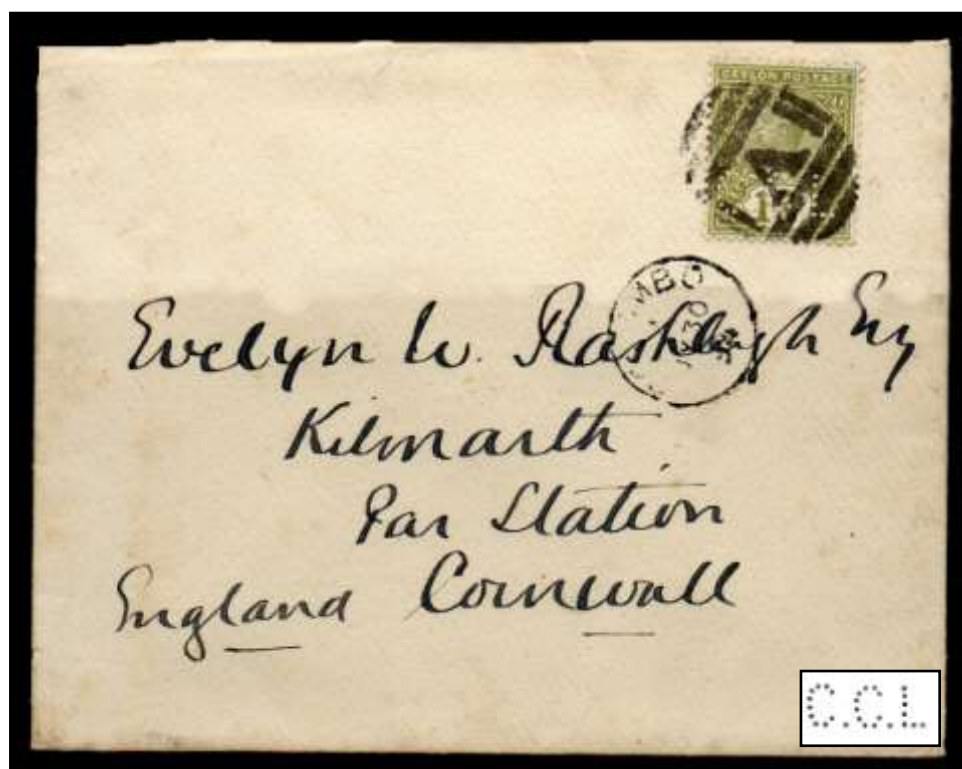 CEYLON POSTAGE
Evelyn W. Rashleigh Esq
Kilmarth
Par Station
England Cornwall
C.C.L.